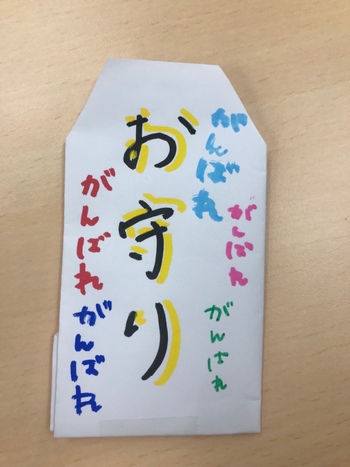 お守り
がんばれ
がんばれ
がんばれ
がんばれ
がんばれ